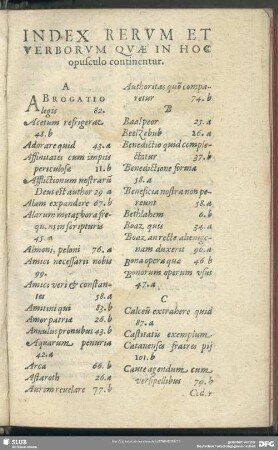 INDEX RERVM ET
VERBORVM QVÆ IN HOC
opusculo continentur.
A
ABROGATIO
legis 82.
Acetum refrigerat
48.b
Adorare quid 43.a
Affinitates cum impiis
periculosæ 11.b
Afflictionum nostrarũ
Deus est author 29 a
Alam expandere 67.b
Alarum metaphora fre
quẽs in scripturis
45.a
Aimoni, peloni 76.a
Amici necessarii nobis
99.
Amici veri & constan-
tes 58.a
Amitini qui 83.b
Amor patriæ 26.b
Annulus pronubus 43.b
Aquarum penuria
42.a
Arca 66.b
Astaroth 26.a
Aurem reuelare 77.b
Authoritas quõ compa-
retur 74.b
B
Baalpeor 25.a
Beelzebub 26.a
Benedictio quid comple-
ctatur 37.b
Benedictione forma
38.a
Beneficia nostra non pe-
reunt 58.a
Bethlahem 6.b
Boaz, quis 34.a
Boaz, an rectè alienige-
nam duxerit 90.a
Bona opera quæ 46.b
Bonorum operum vsus
47.a
C
Calceũ extrahere quid
87.a
Castitatis exemplum
Catanenses fratres pij
101.b
Caute agendum cum
versipellibus 79.b
C.d.r
SLUB